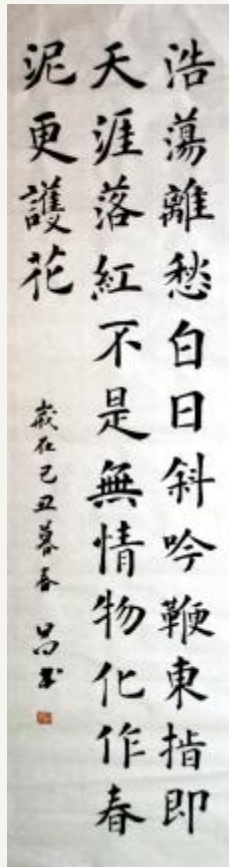 浩蕩離愁白日斜吟鞭東指即
天涯落紅不是無情物化作春
泥更護花
歲在己丑暮春